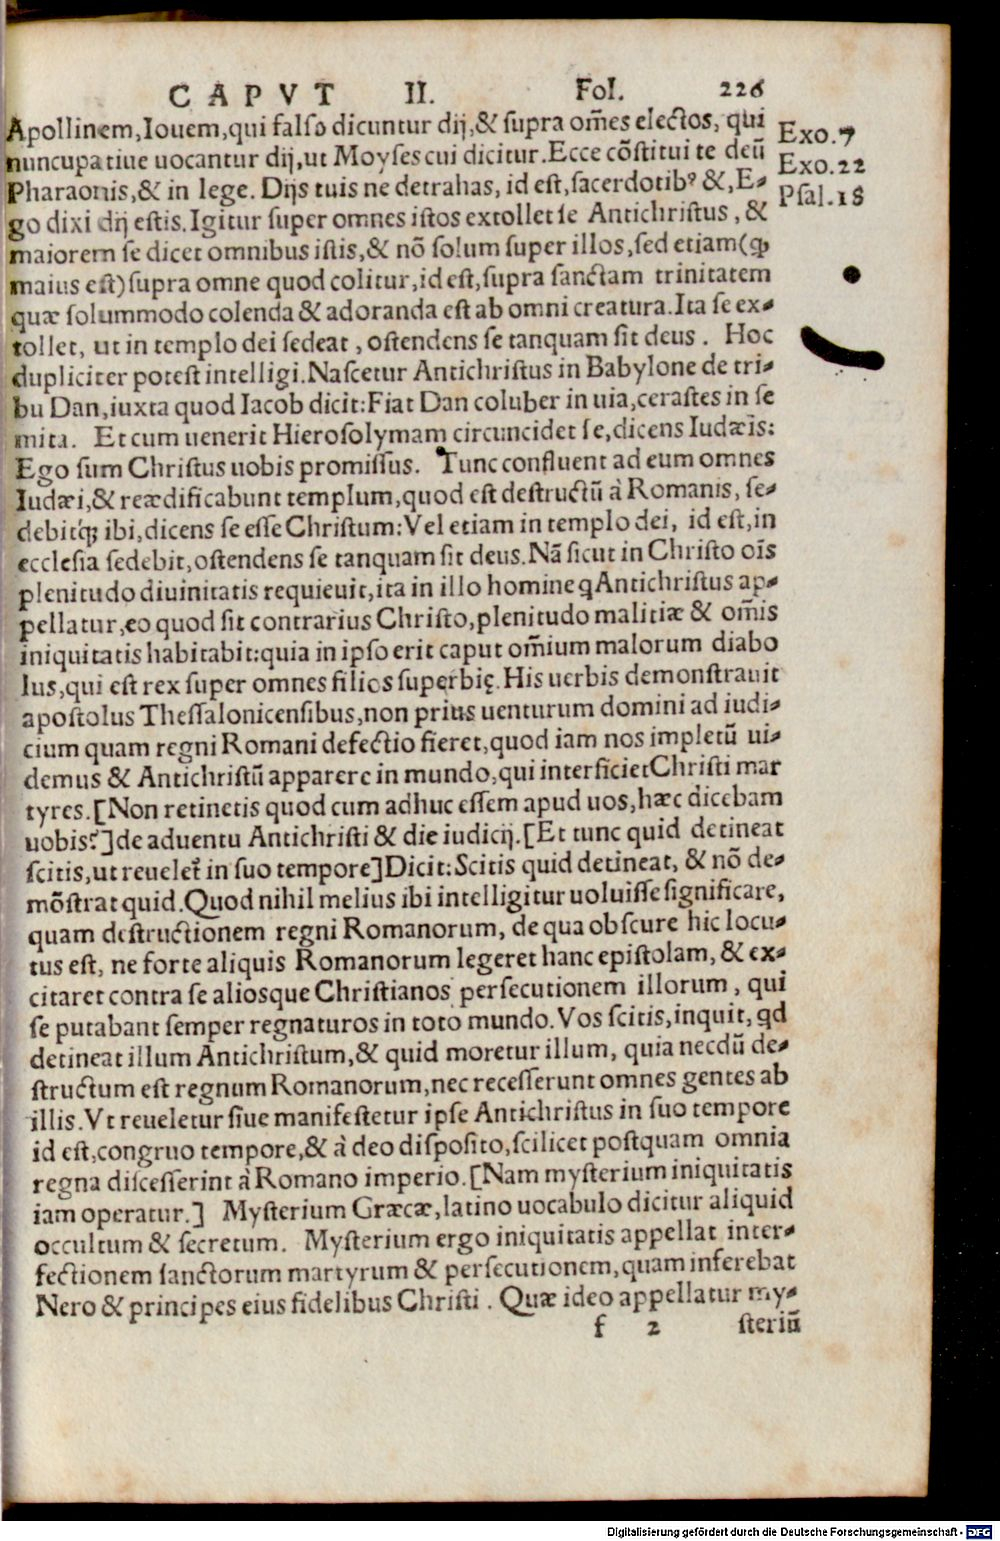 CAPVT II. Fol. 226
Apollinem,Iouem,qui falso dicuntur dij,& supra om̃es electos, qui
nuncupatiue uocantur dij,ut Moyses cui dicitur.Ecce cõstitui te deũ
Pharaonis,& in lege. Dijs tuis ne detrahas, id est,sacerdotibꝰ &,E-
go dixi dij estis.Igitur super omnes istos extollet se Antichristus, &
maiorem se dicet omnibus istis,& nõ solum super illos,sed etiam(ꝙ
maius est)supra omne quod colitur,id est,supra sanctam trinitatem
quæ solummodo colenda & adoranda est ab omni creatura.Ita se ex-
tollet, ut in templo dei sedeat, ostendens se tanquam sit deus. Hoc
dupliciter potest intelligi.Nascetur Antichristus in Babylone de tri-
bu Dan,iuxta quod Iacob dicit:Fiat Dan coluber in uia,cerastes in se
mita. Et cum uenerit Hierosolymam circuncidet se,dicens Iudæis:
Ego sum Christus uobis promissus. Tunc confluent ad eum omnes
Iudæi,& reædificabunt templum,quod est destructũ à Romanis, se-
debitq́; ibi,dicens se esse Christum:Vel etiam in templo dei, id est,in
ecclesia sedebit,ostendens se tanquam sit deus.Nã sicut in Christo oĩs
plenitudo diuinitatis requieuit,ita in illo homine ꝗ Antichristus ap-
pellatur,eo quod sit contrarius Christo,plenitudo malitiæ & om̃is
iniquitatis habitabit:quia in ipso erit caput om̃ium malorum diabo
lus,qui est rex super omnes filios superbię.His uerbis demonstrauit
apostolus Thessalonicensibus,non prius uenturum domini ad iudi-
cium quam regni Romani defectio fieret,quod iam nos impletũ ui-
demus & Antichristũ apparere in mundo,qui interficiet Christi mar
tyres.[Non retinetis quod cum adhuc essem apud uos,hæc dicebam
uobis?]de aduentu Antichristi & die iudicij.[Et tunc quid detineat
scitis,ut reuelet̃ in suo tempore]Dicit:Scitis quid detineat, & nõ de-
mõstrat quid.Quod nihil melius ibi intelligitur uoluisse significare,
quam destructionem regni Romanorum, de qua obscure hic locu-
tus est, ne forte aliquis Romanorum legeret hanc epistolam, & ex-
citaret contra se aliosque Christianos persecutionem illorum, qui
se putabant semper regnaturos in toto mundo.Vos scitis,inquit, qd
detineat illum Antichristum,& quid moretur illum, quia necdũ de-
structum est regnum Romanorum,nec recesserunt omnes gentes ab
illis.Vt reueletur siue manifestetur ipse Antichristus in suo tempore
id est,congruo tempore,& à deo disposito,scilicet postquam omnia
regna discesserint à Romano imperio.[Nam mysterium iniquitatis
iam operatur.] Mysterium Græcæ,latino uocabulo dicitur aliquid
occultum & secretum. Mysterium ergo iniquitatis appellat inter-
fectionem sanctorum martyrum & persecutionem,quam inferebat
Nero & principes eius fidelibus Christi. Quæ ideo appellatur my-
f 2 steriũ
Exo.7
Exo.22
Psal.18
Digitalisierung gefördert durch die Deutsche Forschungsgemeinschaft - DFG